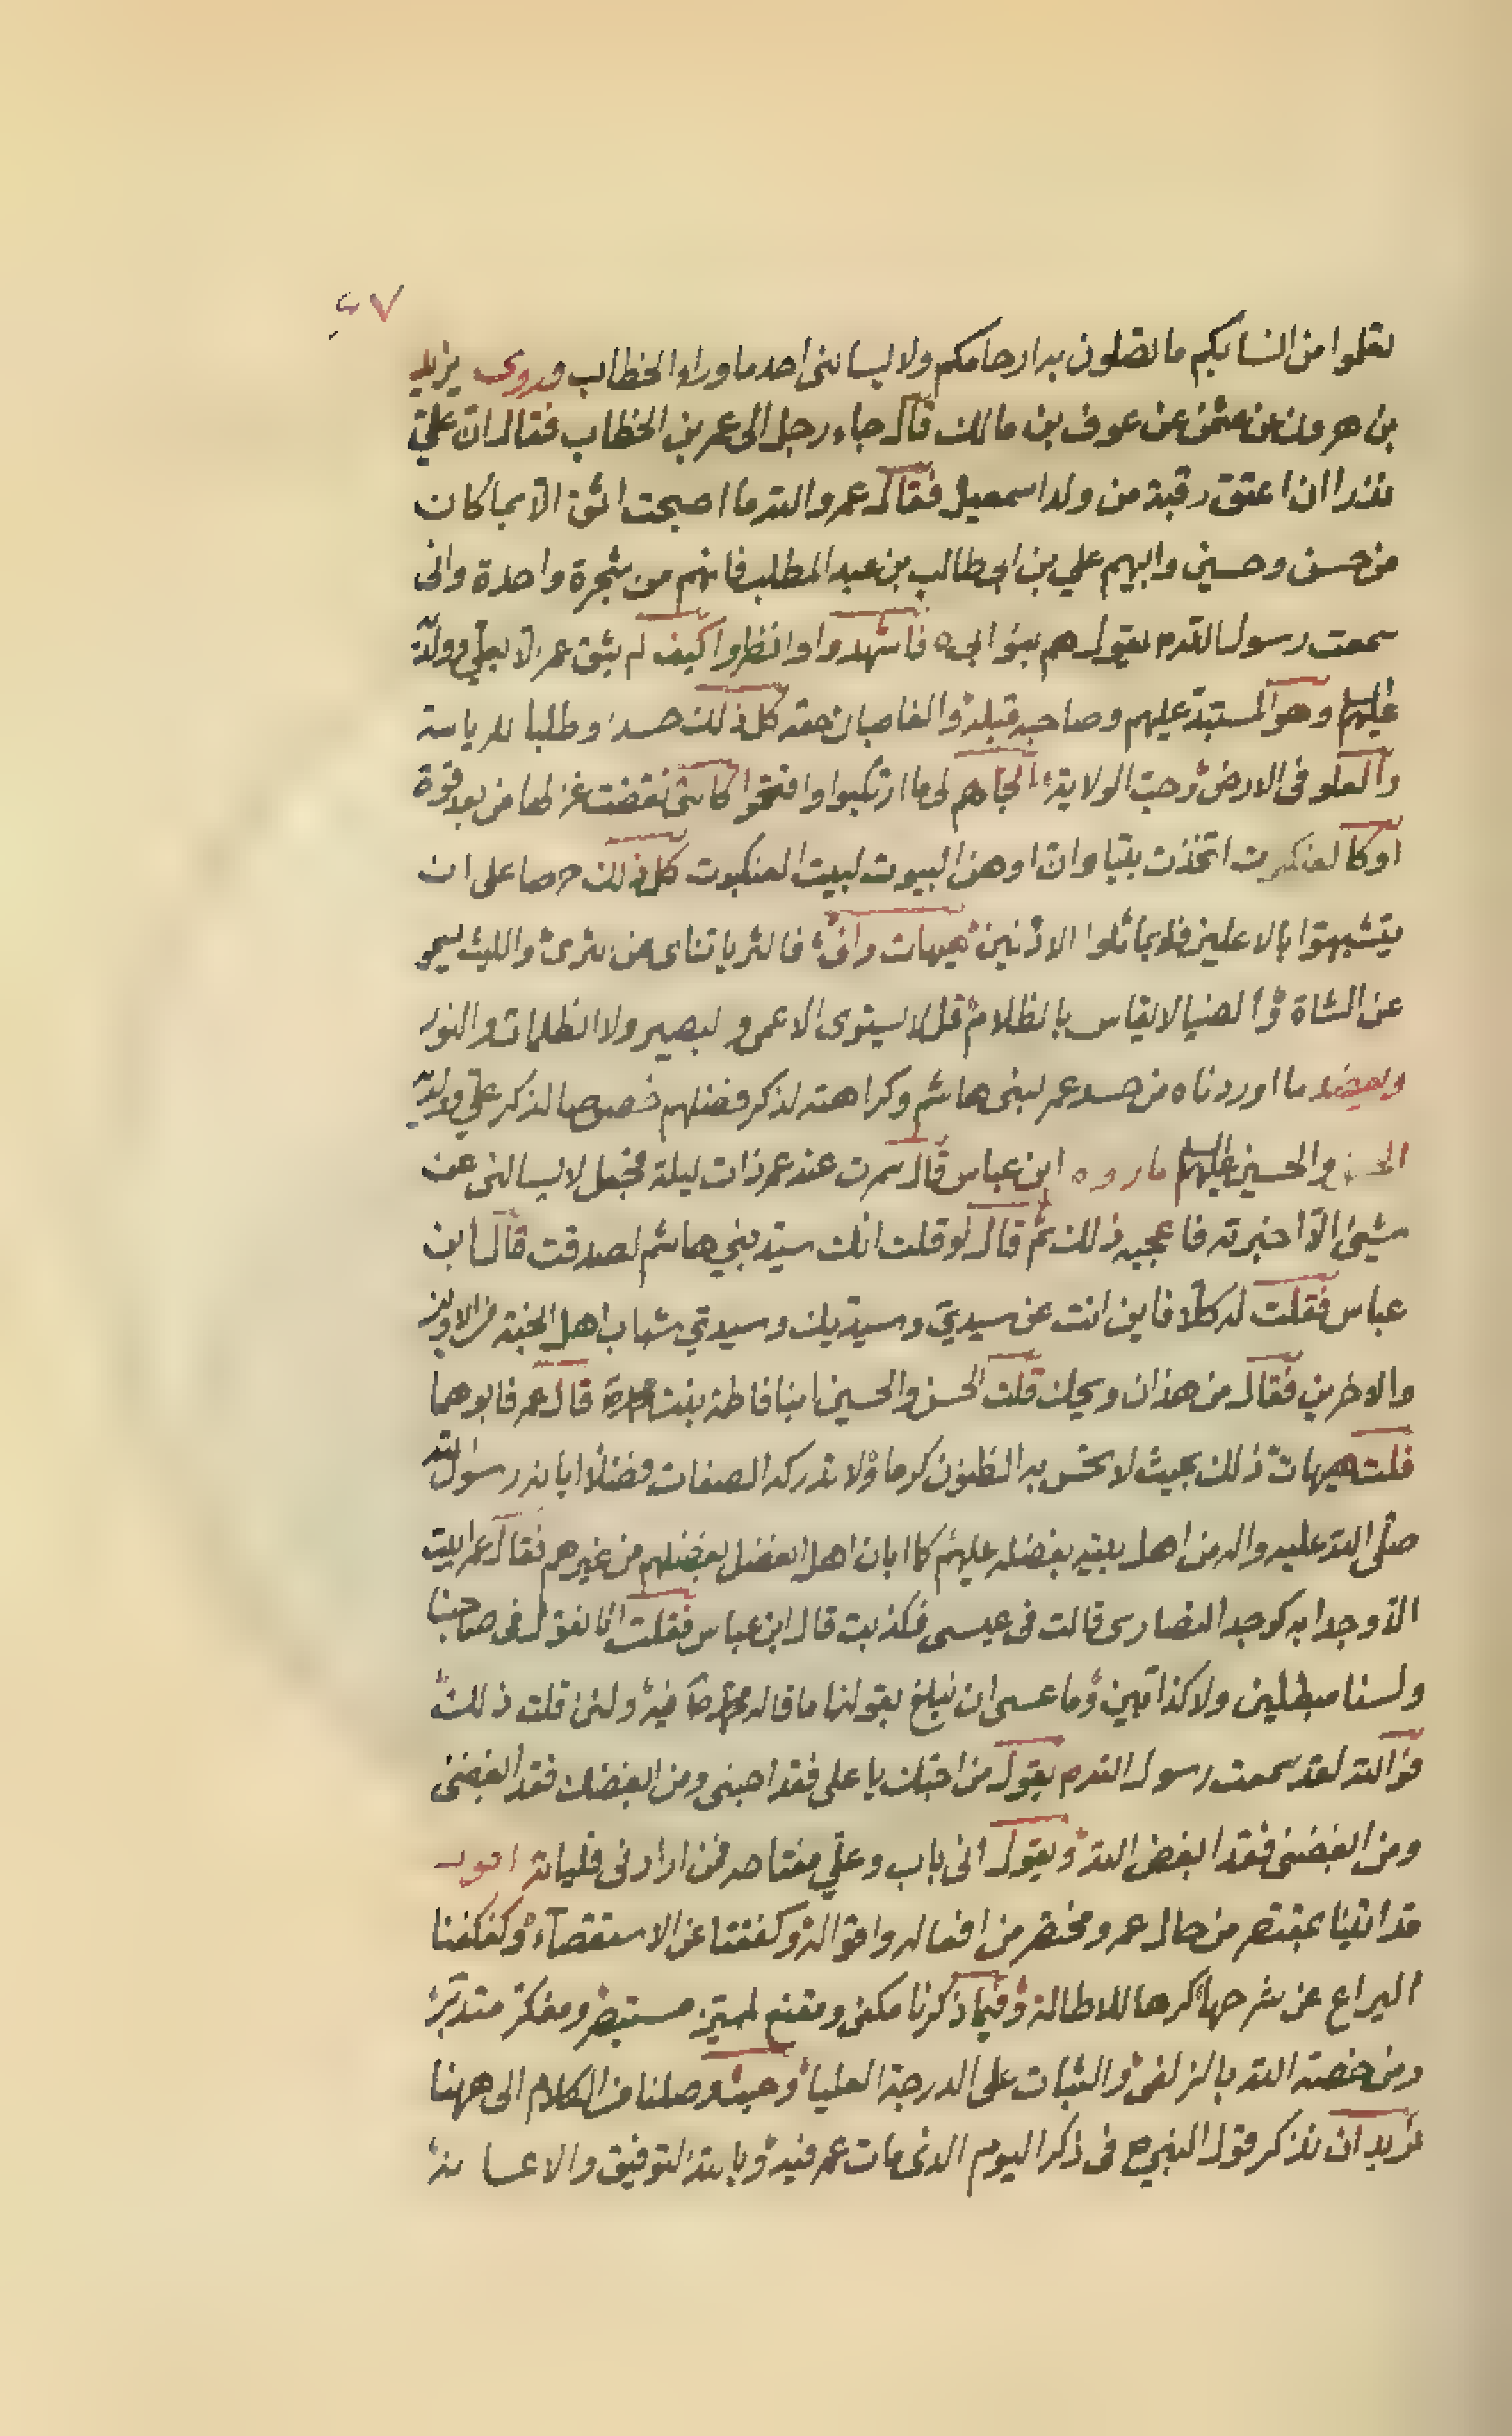 ٤٧
تعلموا من انسابكم ما تصلون به ارحامكم ولا يسالنى احد ما وراء الخطاب وروى يزيد
بن هرون عن عثمن عن عوف بن مالك قال جاء رجل الى عمر بن الخطاب فقال ان علىّ
نذرا ان اعتق رقبة من ولد اسمعيل فقال عمر والله ما اصبحت اثق الا بما كان
من حسن وحسين وابيهم علي بن ابى طالب بن عبد المطلب فانهم من شجرة واحدة وانى
سمعت رسول الله ص يقول هم بنو ابى فاشهدوا وانظروا كيف لم يثق عمر الا بعلي وولده
عليهم السلم وهو المستبدّ عليهم وصاحبه قبله والغاصبان حقه كل ذلك حسدا وطلبا للرياسة
والعلو فى الارض وحب الولاية الجاهم لى ما ارتكبوا وافتحوا كالتى نقضت غزلها من بعد قوة
او كالعنكبوت اتخذت بيتا وان اوهن البيوت لبيت العنكبوت كل ذلك حرصا على ان
يتشبهوا بالاعلين فلا يماثلوا الادنين هيهات وانى فالثريا تناى عن الثرى والليث يسمو
عن الشاة والضيا لا يقاس بالظلام قل لا يستوى الاعمى و لبصير ولا الظلمات والنور
ويعضد ما اوردناه من حسد عمر لبنى هاشم وكراهته لذكر فضلهم خصوصا لذكر علىّ وولديه
الحسن والحسين عليهم السلم ما رواه ابن عباس قال سمرت عند عمر ذات ليلة فجعل لا يسالنى عن
شيئ الا اخبرته فاعجبه ذلك ثم قال لو قلت انك سيد بني هاشم لصدقت قال ابن
عباس فقلت له كلا فاين انت عن سيديّ وسيديك وسيدي شباب اهل الجنة من الاولين
والاخرين فقال من هذان ويحك قلت الحسن والحسين ابنا فاطمة بنت محمد ص قال عمر فابوهما
قلت هيهات ذلك بحيث لا تحس به الظنون كرما ولا تدركه الصفات فضلا ابانه رسول الله
صلى الله عليه واله من اهل بيته بفضله عليهم كما ابان اهل الفضل بفضلهم من غيرهم فقال عمر ابيت
الا وجدا به كوجد النصارى قالت فى عيسى فكذبت قال ابن عباس فقلت انا لنقول فى صاحبنا
ولسنا مبطلين ولا كذابين وما عسى ان نبلغ بقولنا ما قاله محمد ص فيه ولئن قلت ذلك
فوالله لقد سمعت رسول الله ص يقول من احبك يا على فقد احبنى ومن ابغضك فقد ابغضنى
ومن ابغضنى فقد ابغض الله ويقول انى باب وعلي مفتاحه فمن ارادنى فلياته اقول
قد اتينا بمقتصر من حال عمر ومختصر من افعاله واقواله وكففنا عن الاستقصاء وكفكفنا
اليراع عن شرحها كرها للاطالة وفيما ذكرنا مكفى ومقنع لمميز مستبصر ومفكر متدبر
ومن خصه الله بالزلفى والثبات على الدرجة العليا وحيث وصلنا من الكلام الى ههنا
نريد ان نذكر قول النبي ص فى ذكر اليوم الذى مات عمر فيه وبالله التوفيق والاعسانة